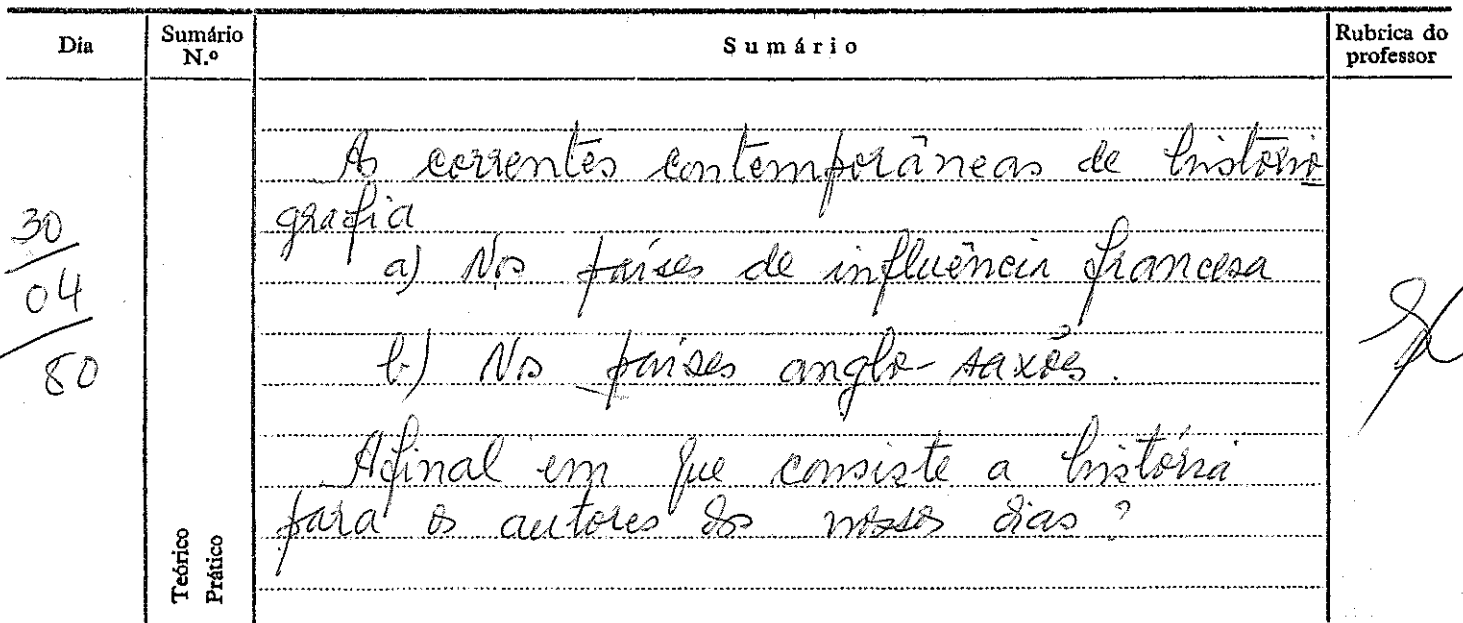 Dia
Sumário N.º
Sumário
Rubrica do professor
As correntes contemporâneas de historio
grafia
a) Nos países de influência francesa
b) Nos países anglo-saxões.
Afinal em que consiste a história
para os autores dos nossos dias?
30
04
80
Teórico
Prático